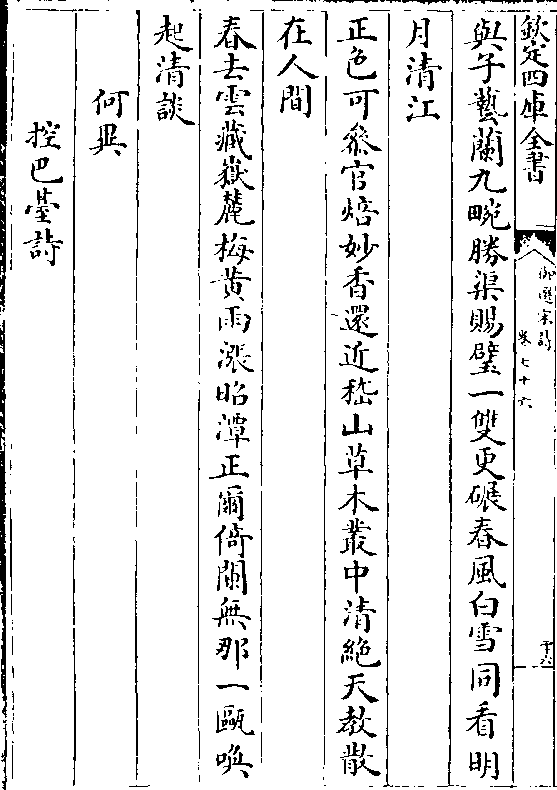 欽定四庫全書
御選宋詩
卷七十六
十六
與子藝蘭九畹勝渠賜璧一雙更碾春風白雪同看明
月清江
正色可參官焙妙香還近嵇山草木叢中清絶天教散
在人間
春去雲藏嶽麓梅黄雨漲昭潭正爾倚闌無那一甌喚
起清談
何異
控巴臺詩